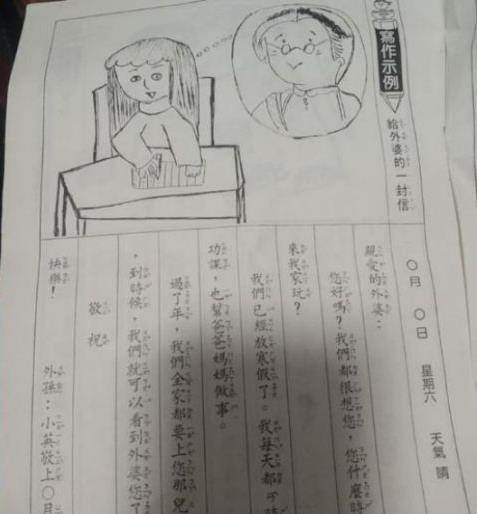 寫作示例
給外婆的一封信
○月 ○日 星期六 天氣 晴
親愛的外婆：
您好嗎？我們都很想您，您什麼時
來我家玩？
我們已經放寒假了。我每天都
功課，也幫爸爸媽媽做事。
過了年，我們全家都要上您那兒
，到時候，我們就可以看到外婆您了
敬祝
快樂！
外孫：小英敬上○月